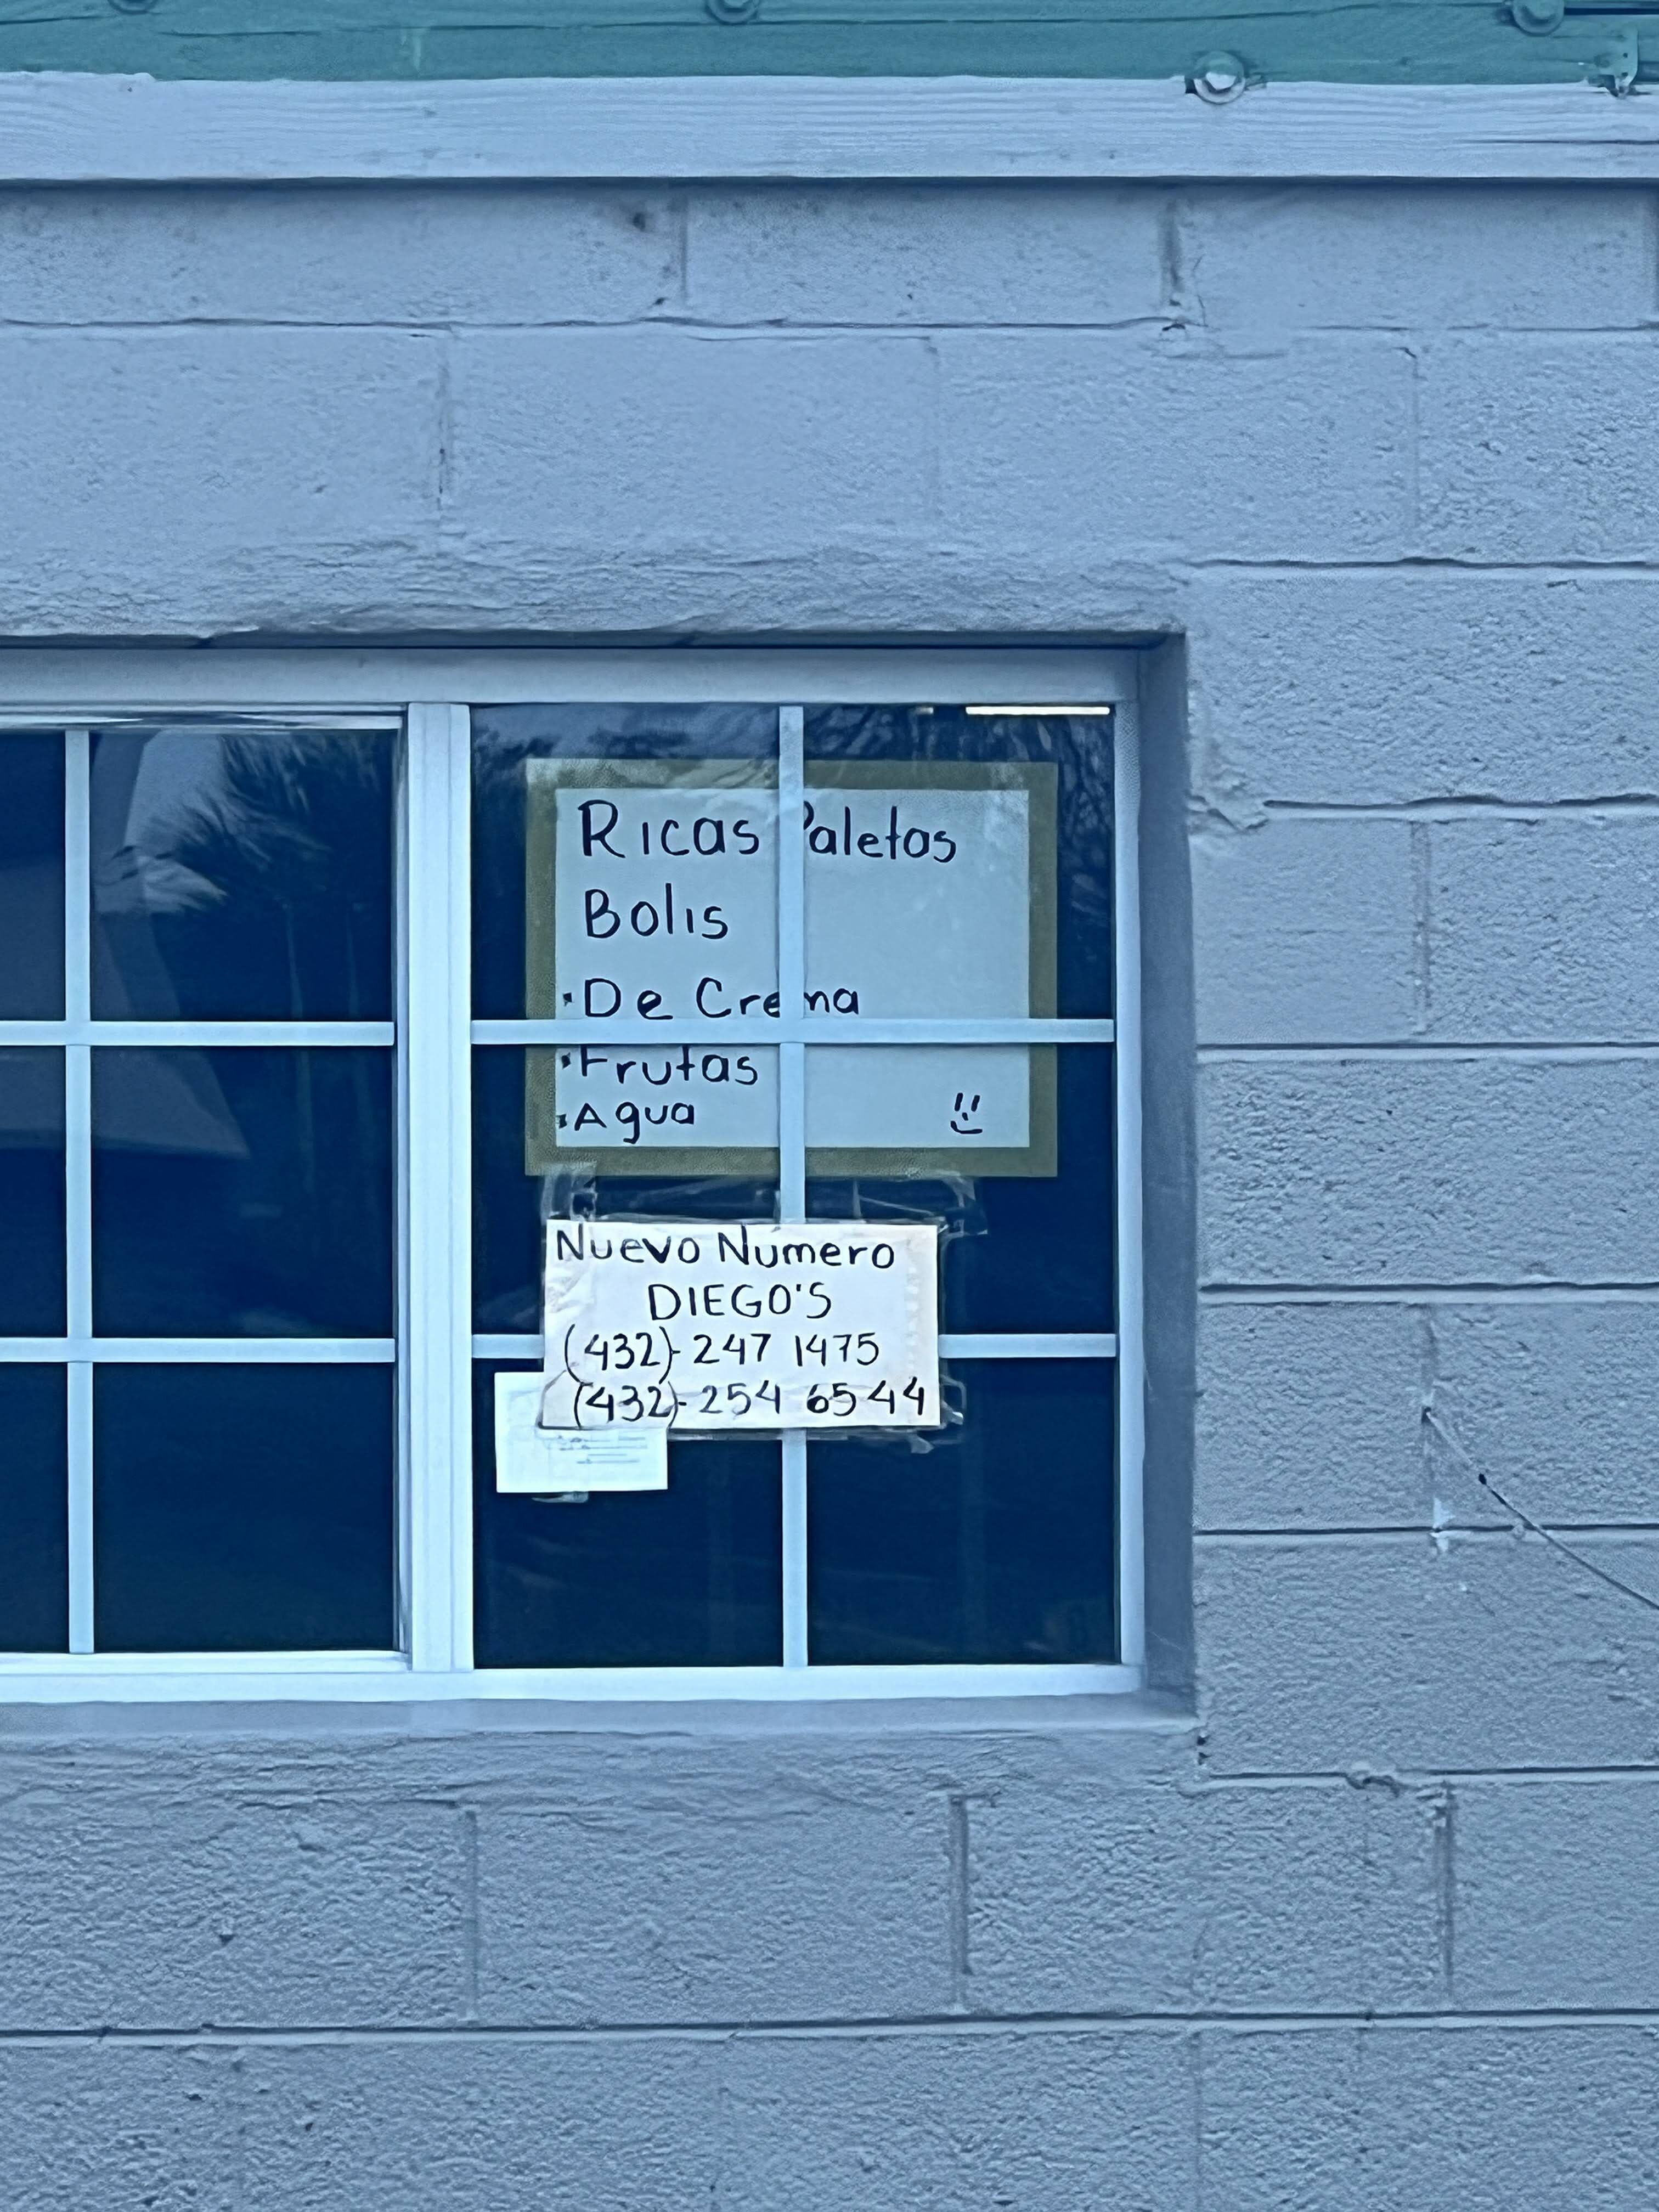 Ricas Paletas
Bolis
·De Crema
·Frutas
·Agua
Nuevo Numero
DIEGO'S
(432)-247 1475
(432)-254 6544